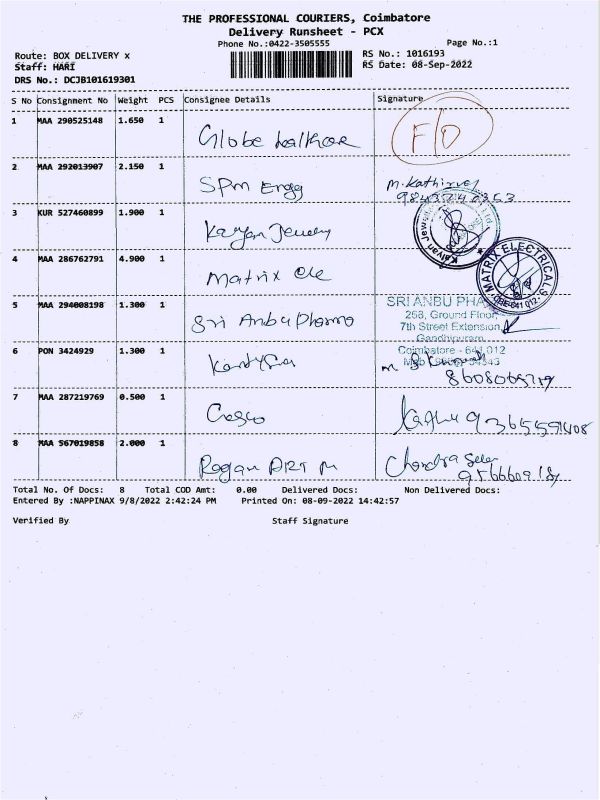 THE PROFESSIONAL COURIERS, Coimbatore
Delivery Runsheet - PCX
Phone No.:0422-3505555
Page No.:1
Route: BOX DELIVERY x
Staff: HARI
DRS No.: DCJB101619301
RS No.: 1016193
RS Date: 08-Sep-2022
S No Consignment No Weight PCS Consignee Details Signature
1 MAA 290525148 1.650 1
Globe F/O
2 MAA 292013907 2.150 1
SPM Engg M. Kathirvel
3 KUR 527460899 1.900 1
Kalyan Jewellery
4 MAA 286762791 4.900 1
Matrix Ele MATRIX ELECTRICALS
5 MAA 294008198 1.300 1
Sri Anbu Pharma
SRI ANBU PHA
258, Ground Floor,
7th Street Extension,
Gandhipuram
Coimbatore - 641 012
6 PON 3424929 1.300 1
7 MAA 287219769 0.500 1
8 MAA 567019858 2.000 1
Chandra
Total No. Of Docs: 8 Total COD Amt: 0.00 Delivered Docs: Non Delivered Docs:
Entered By :NAPPINAX 9/8/2022 2:42:24 PM Printed On: 08-09-2022 14:42:57
Verified By Staff Signature